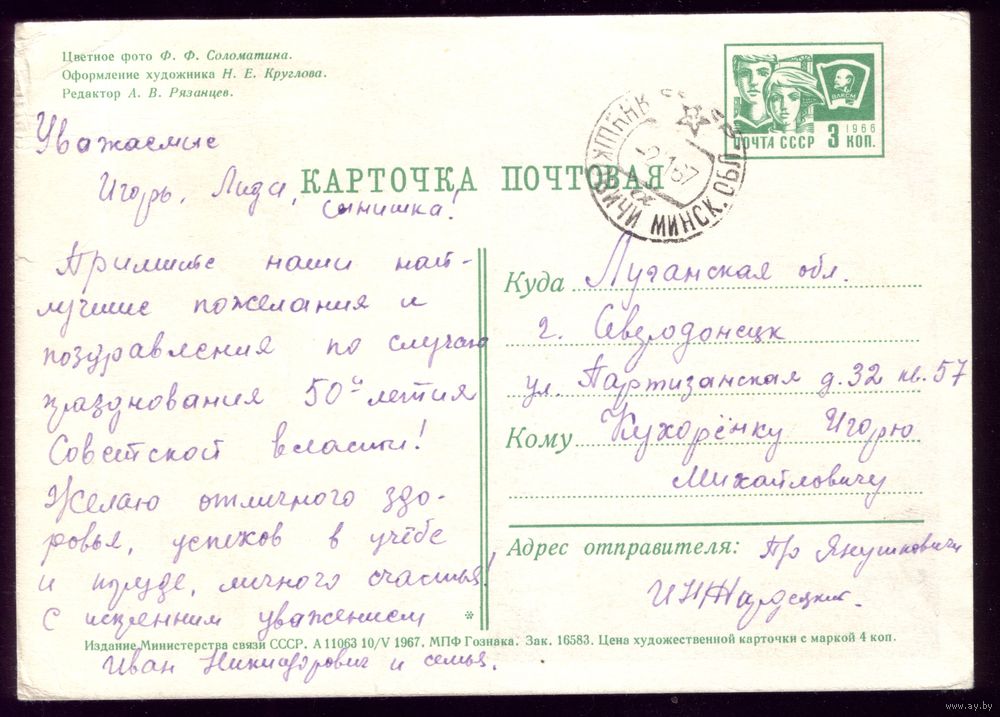 Цветное фото Ф. Ф. Соломатина.
Оформление художника Н. Е. Круглова.
Редактор А. В. Рязанцев.
ВЛКСМ
1966
ПОЧТА СССР 3 КОП.
МИНСК. ОБЛ
КАРТОЧКА ПОЧТОВАЯ
Уважаемые
Игорь, Лида,
сынишка!
Примите наши наи-
лучшие пожелания и
поздравления по случаю
празднования 50и летия
Советской власти!
Желаю отличного здо-
ровья, успехов в учёбе
и труде, личного счастья!
С искренним уважением
Иван Никифорович и семья.
Куда Луганская обл.
г. Северодонецк
ул. Партизанская д. 32 кв. 57
Кому Кухорёнку Игорю
Михайловичу
Адрес отправителя: Янушковичи
*
Издание Министерства связи СССР. А 11063 10/V 1967. МПФ Гознака. Зак. 16583. Цена художественной карточки с маркой 4 коп.
www.ay.by